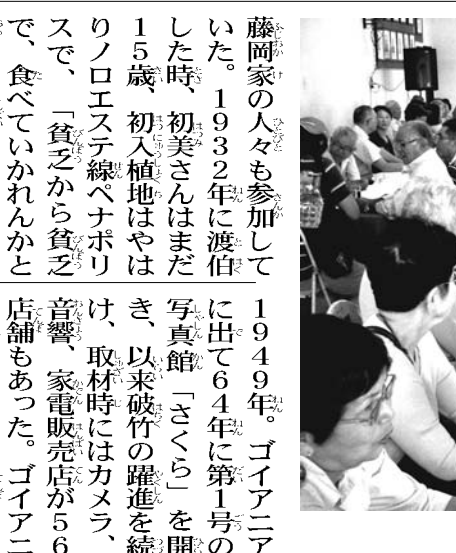 藤岡家の人々も参加して
いた。1932年に渡伯
した時、初美さんはまだ
15歳、初入植地はやは
りノロエステ線ペナポリ
スで、「貧乏から貧乏
で、食べていかれんかと
1949年。ゴイアニア
に出て64年に第1号の
写真館「さくら」を開
き、以来破竹の躍進を続
け、取材時にはカメラ、
音響、家電販売店が56
店舗もあった。ゴイアニ